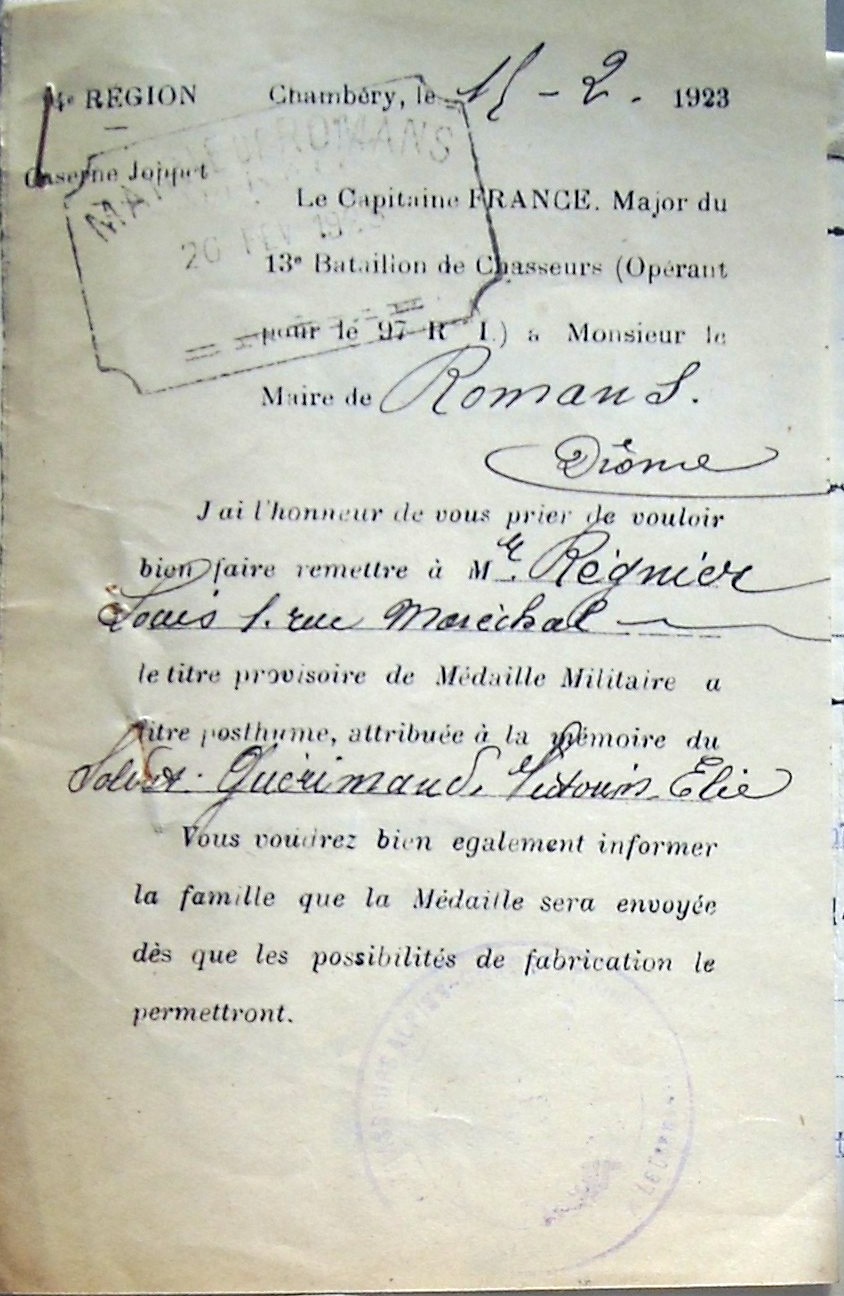 4e REGION
Chambéry, le 15 - 2. 1923
Caserne Joppet
MAIRIE DE ROMANS
20 FEV 1923
Le Capitaine FRANCE. Major du
13e Bataillon de Chasseurs (Opérant
pour le 97 R I.) a Monsieur le
Maire de Romans.
Drôme
J'ai l'honneur de vous prier de vouloir
bien faire remettre à Mr. Régnier
Louis 1. rue Maréchal
le titre provisoire de Médaille Militaire a
titre posthume, attribuée à la mémoire du
Soldat. Guérimand, Elie
Vous voudrez bien egalement informer
la famille que la Médaille sera envoyée
dès que les possibilités de fabrication le
permettront.